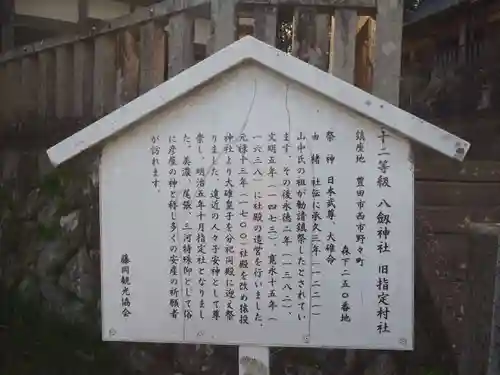 十二等級 八劔神社 旧指定村社
鎮座地 豊田市西市野々町
森下二五〇番地
祭神 日本武尊、大碓命
由緒 社伝に承久三年(一二二一)
山中氏の祖が勧請鎮祭したとされてい
ます。その後永徳二年(一三八二)、
文明五年(一四七三)、寛永十五年(
一六三八)に社殿の造営を行いました。
元禄十三年(一七〇〇)社殿を改め猿投
神社より大碓皇子を分祀同殿に迎え祭
りました。遠近の人々子安神として尊
崇し、明治五年十月指定社となりまし
た。美濃、尾張、三河特殊卸として俗
に彦屋の神と称し多くの安産の祈願者
が訪れます。
藤岡観光協会